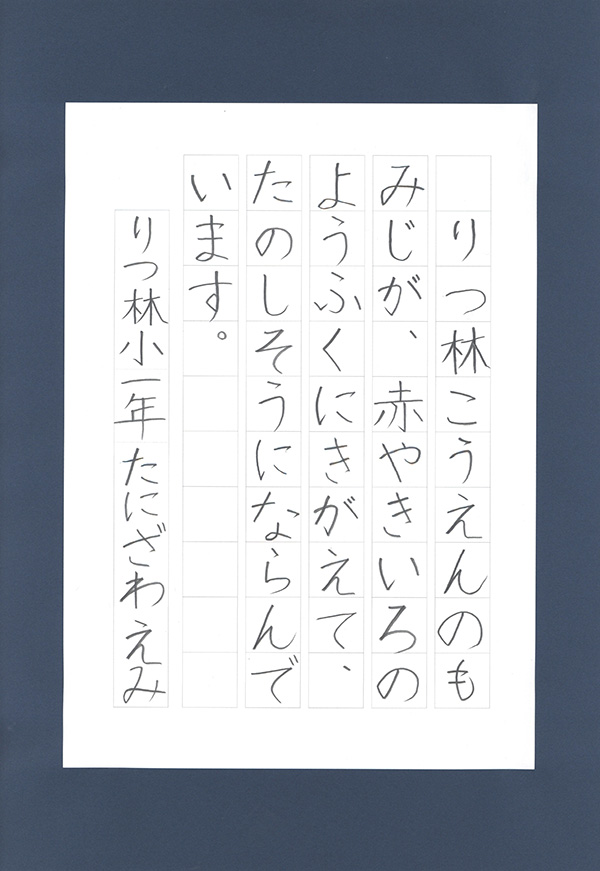 りつ林こうえんのも
みじが、赤やきいろの
ようふくにきがえて、
たのしそうにならんで
います。
りつ林小一年たにざわえみ